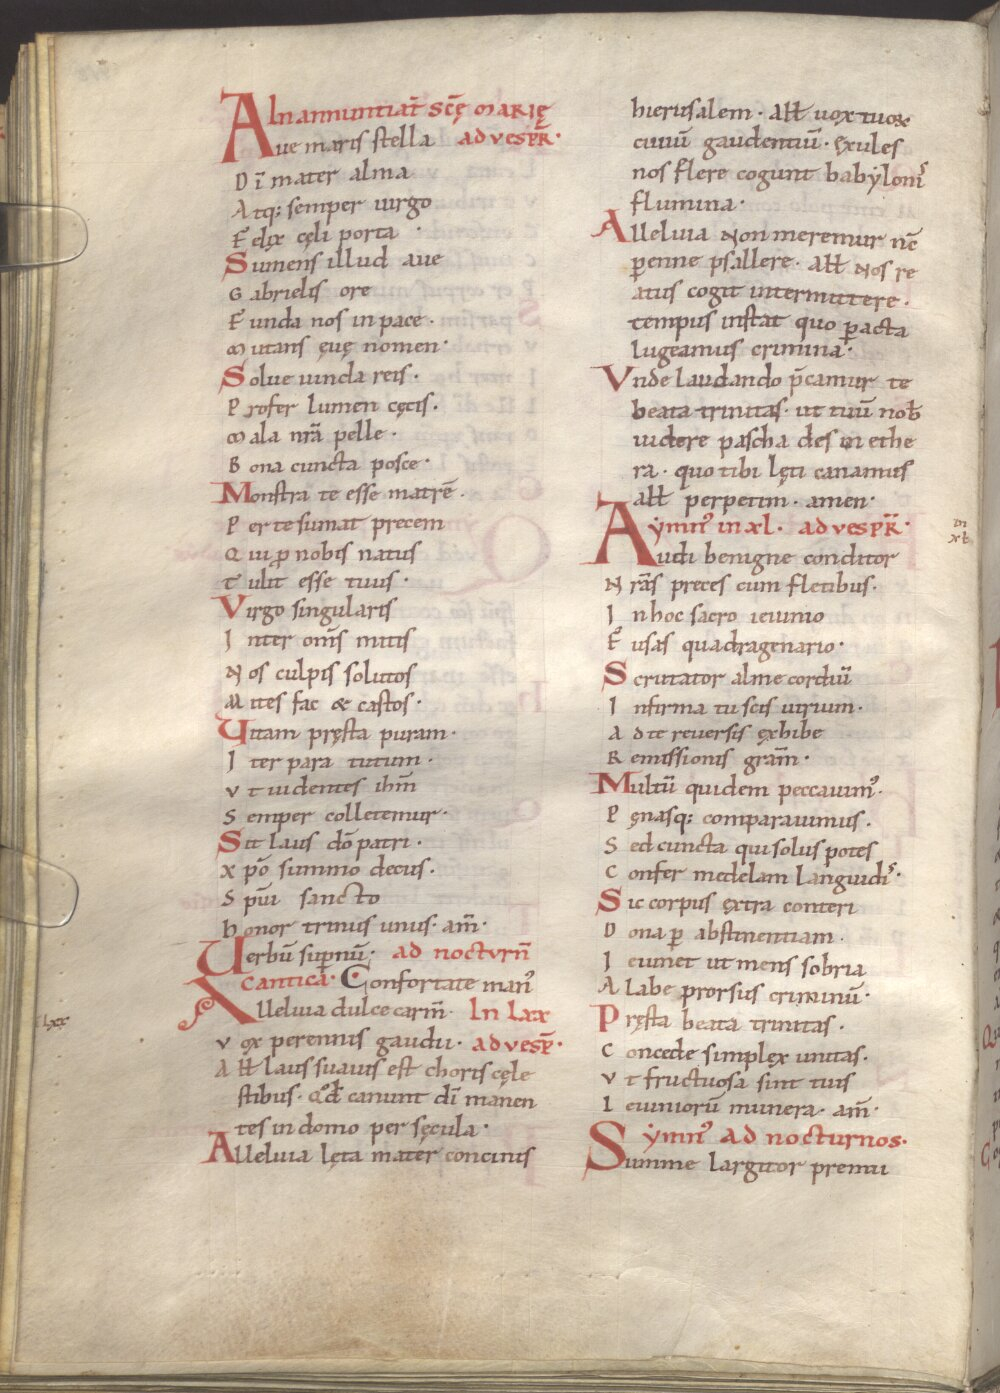 In annuntiat̄ scę̄ marię
Aue maris stella ad vesp̄R̄·
Dī mater alma
Atq; semper uirgo
Felix cęli porta ·
Sumens illud aue
Gabrielis ore
Funda nos in pace·
Mutans ęuę nomen·
Solue uincla reis·
Profer lumen cęcis·
Mala nr̄a pelle·
Bona cuncta posce·
Monstra te esse matrē·
Per te sumat precem
Qui ꝓ nobis natus
Tulit esse tuus·
Virgo singularis
Inter om̄s mitis
Nos culpis solutos
Mites fac & castos·
Uitam pręsta puram·
Iter para tutum·
Vt uidentes ih̄m
Semper colletemur·
Sit laus dō patri·
Xp̄o summo decus·
Sp̄ui sancto
Honor trinus unus· am̄·
Uerbū sup̄nū· ad nocturn̄
Cantica· Confortate man᾽
Alleluia dulce carm̄ In lxx
Vox perennis gaudii· ad vesp̄·
All̄ laus suauis est choris cęle
stibus· Qd̄ canunt dī manen
tes in domo per sęcula·
Alleluia lęta mater concinis
lxx
hierusalem· all̄ uox tuoꝝ
ciuiū gaudentiū· exules
nos flere cogunt babylonis
flumina·
Alleluia Non meremur nc̄
ꝑenne psallere· all̄ Nos re
atus cogit intermittere·
tempus instat quo ꝑacta
lugeamus crimina·
Vnde laudando p̄camur te
beata trinitas· ut tuū nob̄
uidere pascha des in ethe
ra· quo tibi lęti canamus
all̄ perpetim· amen·
ymn᾽ in xl· ad vesp̄R̄·
Audi benigne conditor
Nr̄as preces cum fletibus·
In hoc sacro ieiunio
Fusas quadragenario·
Scrutator alme cordiū
Infirma tu scis uirium·
Ad te reuersis exhibe
Remissionis gram̄·
Multū quidem peccauim᾽·
Pęnasq; comparauimus·
Sed cuncta qui solus potes
Confer medelam languidis·
Sic corpus extra conteri
Dona ꝑ abstinentiam·
Ieiunet ut mens sobria
A labe prorsus criminū·
Pręsta beata trinitas·
Concede simplex unitas·
Vt fructuosa sint tuis
Ieiuniorū munera· am̄·
ymn᾽ ad nocturnos·
Summe largitor premii
in
xl